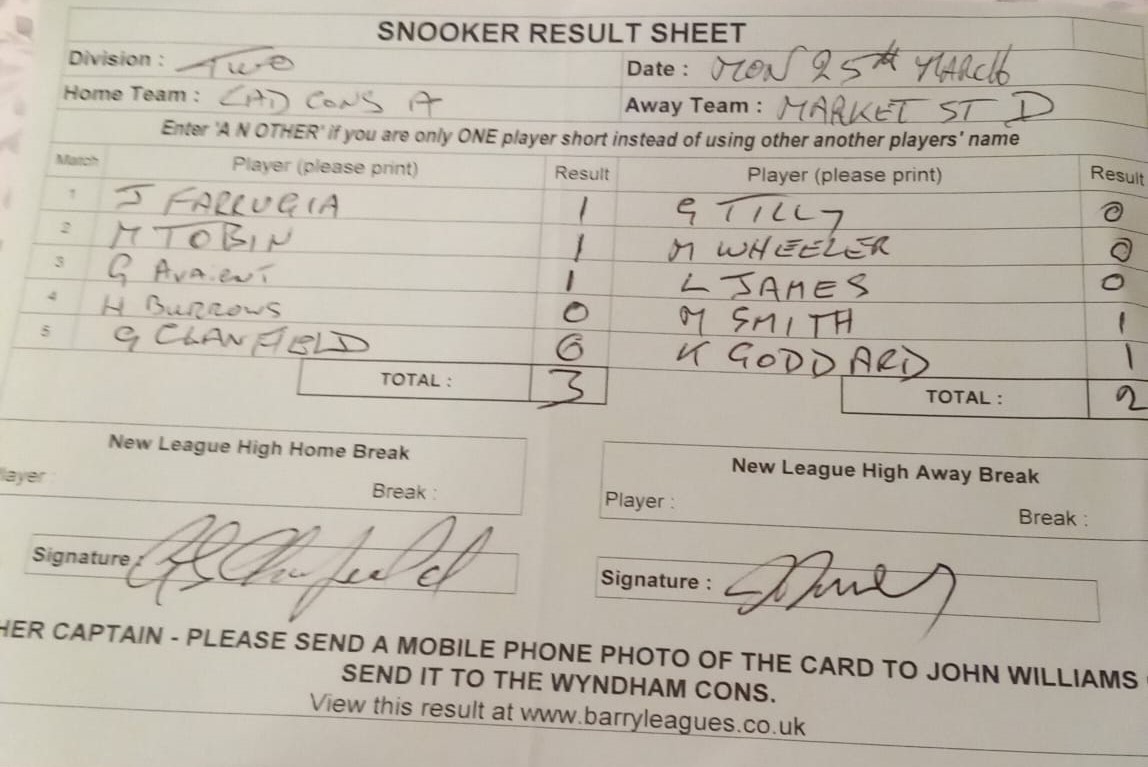 SNOOKER RESULT SHEET
Division : Two Date : MON 25th MARCH
Home Team : CAD CONS A Away Team : MARKET ST D
Enter 'A N OTHER' if you are only ONE player short instead of using other another players' name
Match Player (please print) Result Player (please print) Result
1 J FARRUGIA 1 G TILLY 0
2 M TOBIN 1 M WHEELER 0
3 G Avaient 1 L JAMES 0
4 H BURROWS 0 M SMITH 1
5 G CLANFIELD 0 K GODDARD 1
TOTAL : 3 TOTAL : 2
New League High Home Break New League High Away Break
layer Break : Player : Break :
Signature : Signature :
HER CAPTAIN - PLEASE SEND A MOBILE PHONE PHOTO OF THE CARD TO JOHN WILLIAMS
SEND IT TO THE WYNDHAM CONS.
View this result at www.barryleagues.co.uk